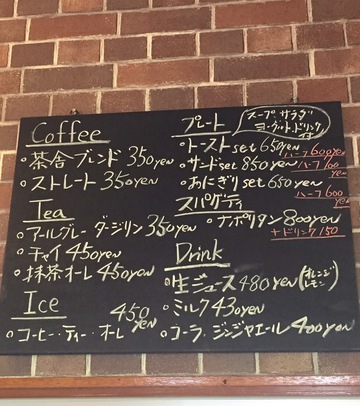 Coffee
・茶舎ブレンド 350yen
・ストレート 350yen
Tea
・アールグレー・ダージリン 350yen
・チャイ 450yen
・抹茶オーレ 450yen
Ice
・コーヒー・ティー・オーレ 450yen
プレート
スープ サラダ
ヨーグルト.ドリンク
付
・トーストset 650yen
ハーフ600yen
・サンドset 850yen
ハーフ700yen
・おにぎりset 650yen
ハーフ600yen
スパゲティ
・ナポリタン 800yen
+ドリンク150
Drink
・生ジュース 480yen (オレンジ
レモン)
・ミルク 430yen
・コーラ・ジンジャエール 400yen